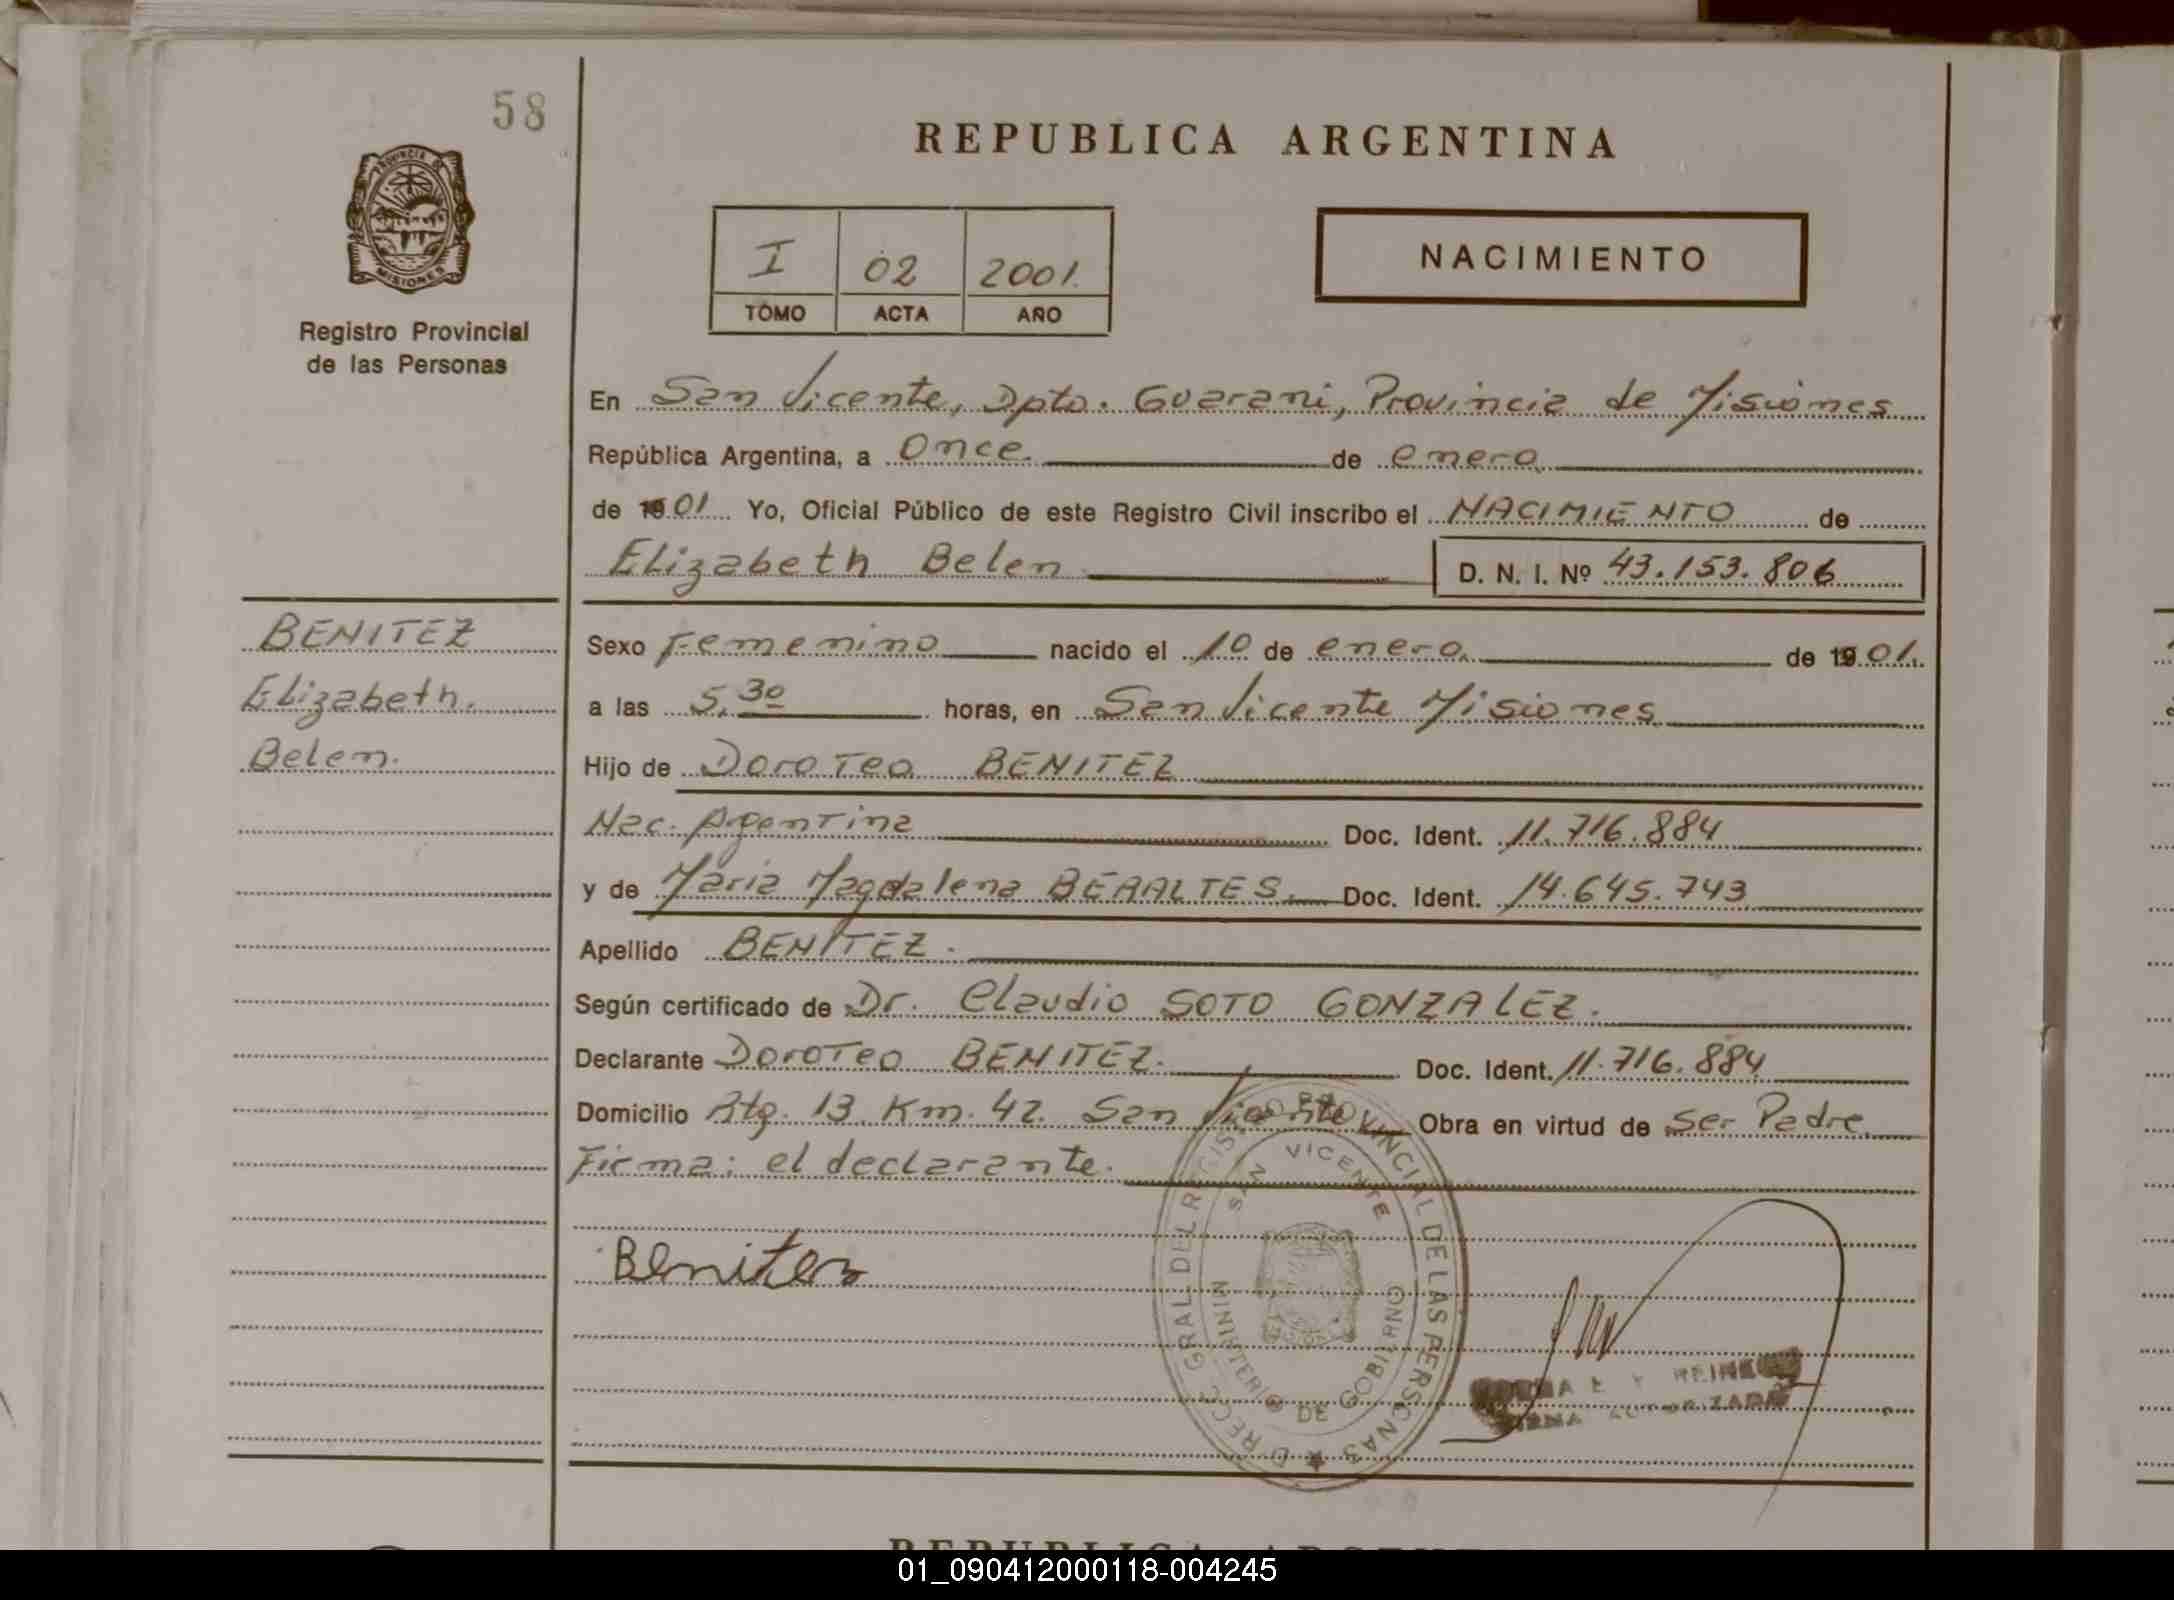 58
REPUBLICA ARGENTINA
PROVINCIA DE
MISIONES
Registro Provincial
de las Personas
I 02 2001.
TOMO ACTA AÑO
NACIMIENTO
En San Vicente, Dpto. Guarani, Provincia de Misiones
República Argentina, a Once. de enero
de 1901 Yo, Oficial Público de este Registro Civil inscribo el NACIMIENTO de
Elizabeth Belen D. N. I. Nº 43.153.806
BENITEZ
Elizabeth.
Belen.
Sexo Femenino nacido el 10 de enero. de 1901.
a las 5,30 horas, en San Vicente Misiones
Hijo de Doroteo BENITEZ
Nac. Argentina Doc. Ident. 11.716.884
y de Maria Magdalena BERALTES. Doc. Ident. 14.645.743
Apellido BENITEZ.
Según certificado de Dr. Claudio SOTO GONZALEZ.
Declarante Doroteo BENITEZ. Doc. Ident. 11.716.884
Domicilio Rta. 13 Km. 42. San Vicente Obra en virtud de ser Padre
Firma: el declarante.
Benitez
DIRECC. GRAL. DEL REGISTRO PROVINCIAL DE LAS PERSONAS
SAN VICENTE
MINISTERIO DE GOBIERNO
REINE
AUTORIZADA
REPUBLICA ARGENTINA
01_090412000118-004245